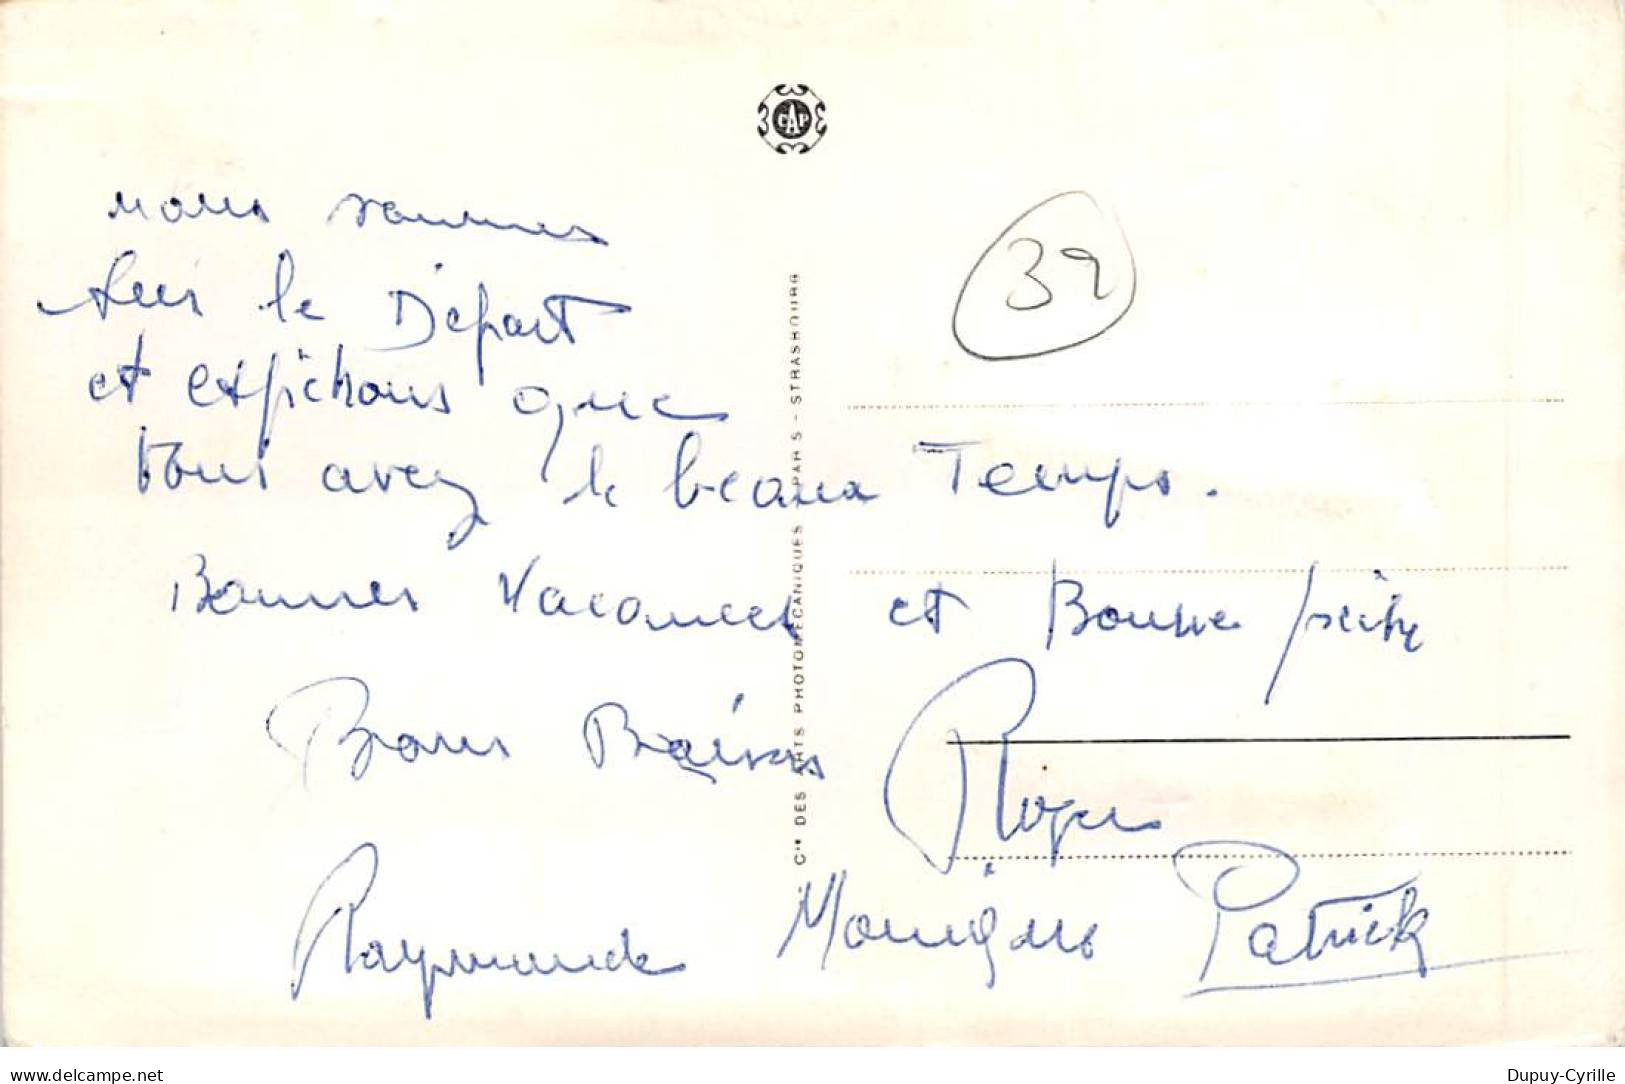 CAP
nous sommes
sur le Départ
et espérons que
vous avez le beau Temps.
Bonnes Vacances et Bonne
Bons Baisers Roger
Raymonde Monique Patrick
39
Cie DES ARTS PHOTOMECANIQUES PARIS - STRASBOURG
delcampe.net
Dupuy-Cyrille